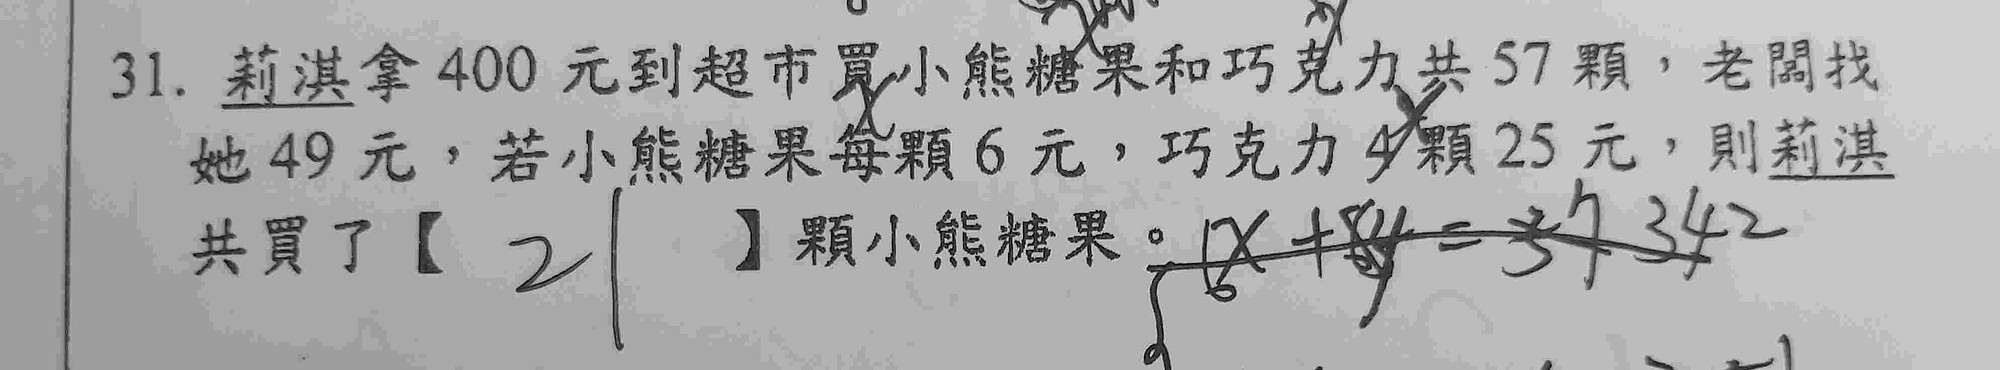 31. 莉淇拿 400 元到超市買小熊糖果和巧克力共 57 顆,老闆找
她 49 元,若小熊糖果每顆 6 元,巧克力 4 顆 25 元,則莉淇
共買了【 21 】顆小熊糖果。
342